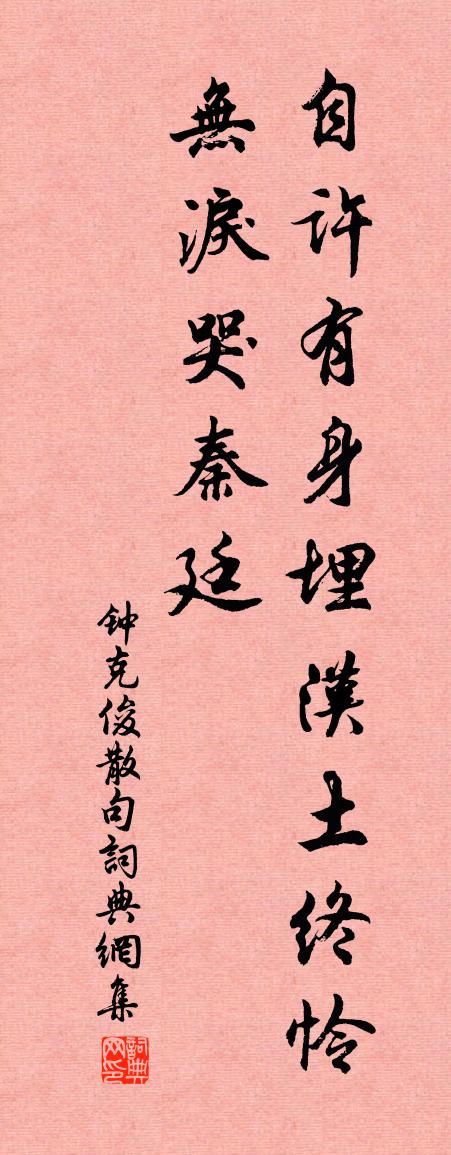 自許有身埋漢土終怜
無淚哭秦廷
钟克俊散句詞典網集
詞典网印